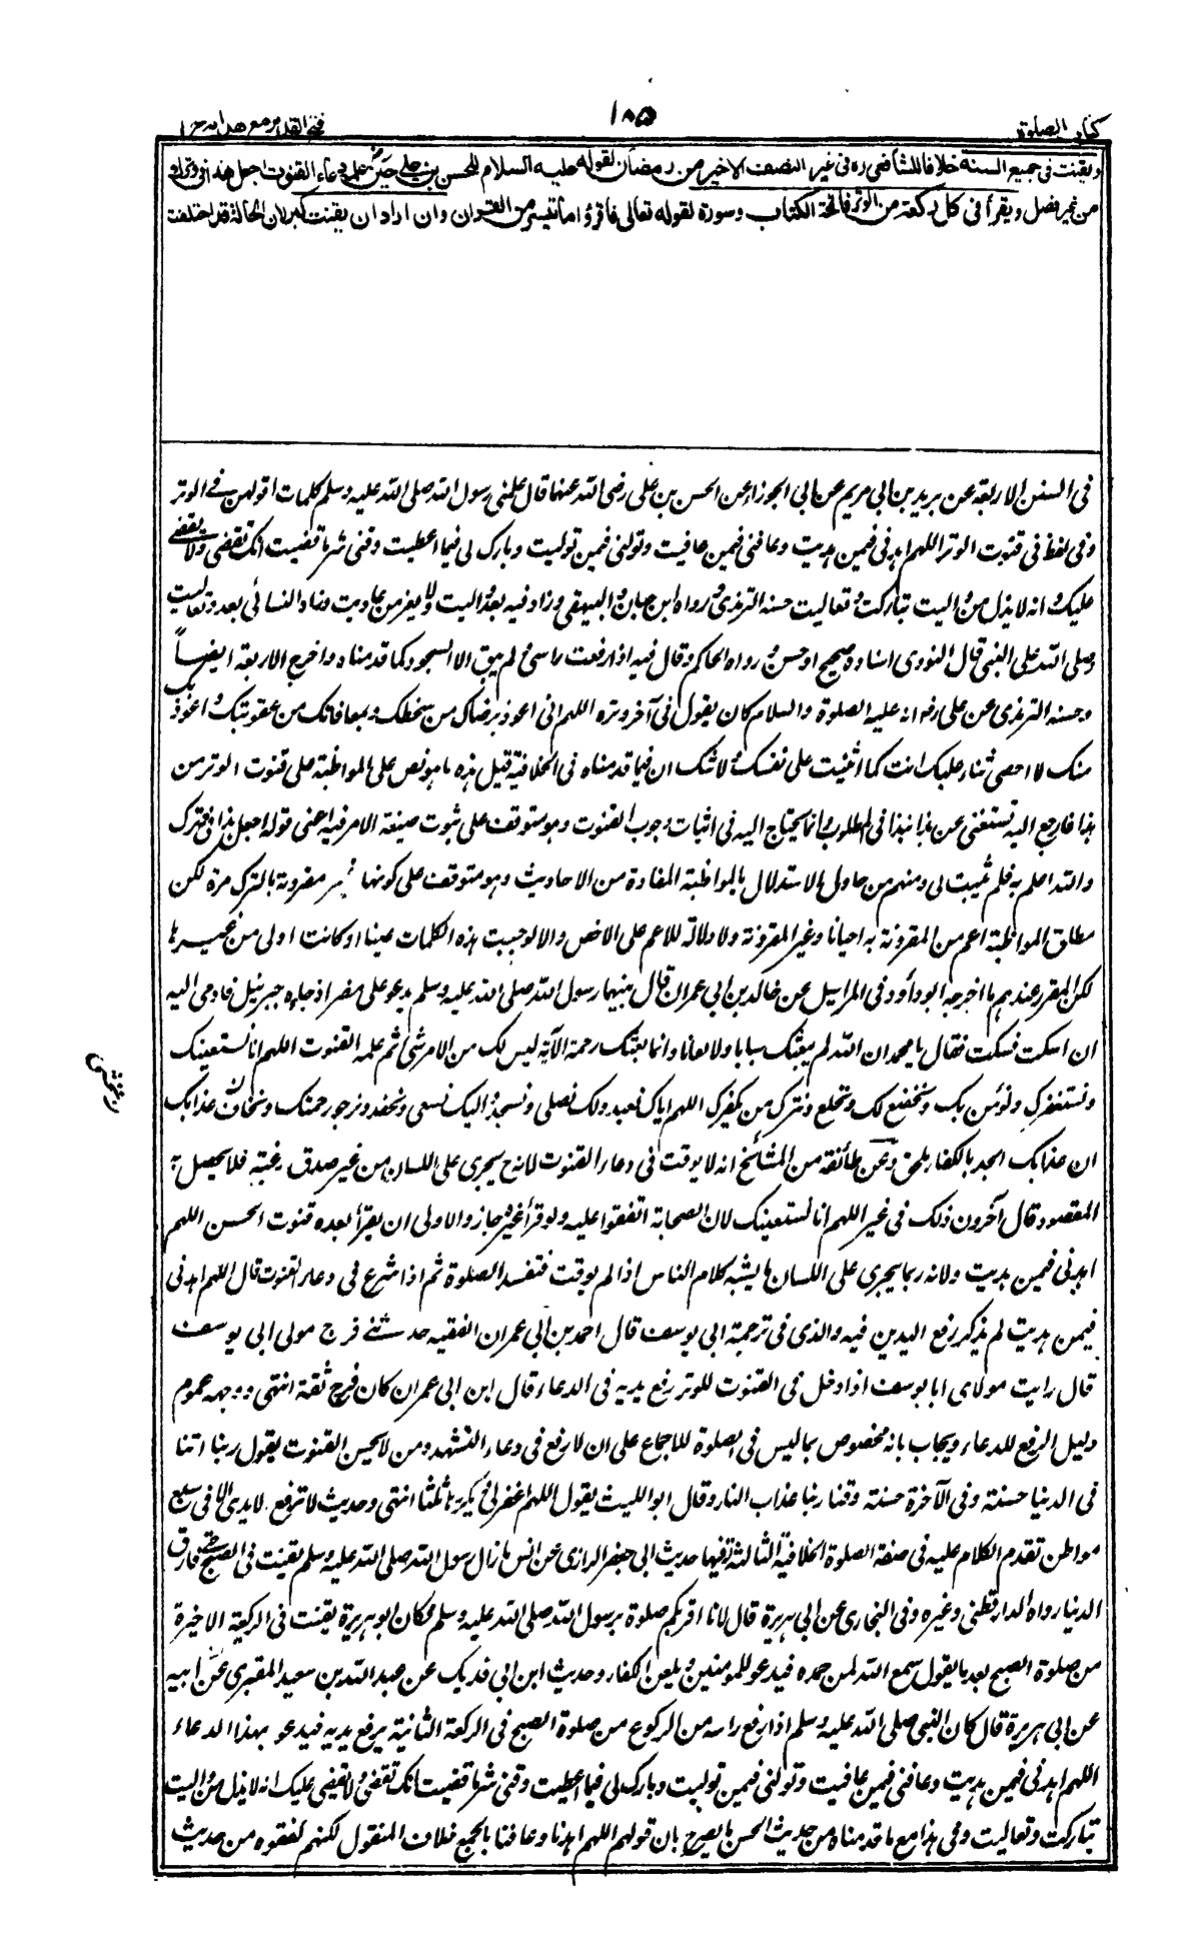 كتاب الصلوة
١٨٥
فتح القدير مع هدايه ج١
ويقنت فى جميع السنة خلافا للشافعى ره فى غير النصف الاخير من رمضان لقوله عليه السلام للحسن بن على حين علمه دعاء القنوت اجعل هذا فى وترك
من غير فصل ويقرأ فى كل ركعة من الوتر فاتحة الكتاب وسورة لقوله تعالى فاقرؤا ما تيسر من القران وان اراد ان يقنت كبر لان الحالة قد اختلفت
فى السنن الاربعة عن بريد بن ابى مريم عن ابى الجوزاء عن الحسن بن على رضى الله عنهما قال علمنى رسول الله صلى الله عليه وسلم كلمات اقولهن فى الوتر
وفى لفظ فى قنوت الوتر اللهم اهدنى فيمن هديت وعافنى فيمن عافيت وتولنى فيمن توليت وبارك لى فيما اعطيت وقنى شر ما قضيت انك تقضى ولا يقضى
عليك وانه لا يذل من واليت تباركت وتعاليت حسنه الترمذى ورواه ابن حبان والبيهقى وزاد فيه بعد واليت ولا يعز من عاديت وزاد النسائى بعد وتعاليت
وصلى الله على النبى قال النووى اسناده صحيح او حسن ورواه الحاكم وقال فيه اذا رفعت راسى ولم يبق الا السجود كما قدمناه واخرج الاربعة ايضاً
وحسنه الترمذى عن على رض انه عليه الصلوة والسلام كان يقول فى آخر وتره اللهم انى اعوذ برضاك من سخطك وبمعافاتك من عقوبتك واعوذ بك
منك لا احصى ثناء عليك انت كما اثنيت على نفسك ولا شك ان فيما قدمناه فى الخلافية قبيل هذه ما هو نص على المواظبة على قنوت الوتر من
هذا فارجع اليه تستغنى عن هذا نبذا فى المطلوب وانما يحتاج اليه فى اثبات وجوب القنوت وهو متوقف على ثبوت صيغة الامر فيه اعنى قوله اجعل هذا فى وترك
والله اعلم به فلم يثبت لى ومنهم من حاول الاستدلال بالمواظبة المفادة من الاحاديث وهو متوقف على كونها غير مقرونة بالترك مرة لكن
مطلق المواظبة اعم من المقرونة به احيانا وغير المقرونة ولا دلالة للاعم على الاخص والا لوجبت هذه الكلمات عينا او كانت اولى من غيرها
لكن المقرر عندهم ما اخرجه ابو داؤد فى المراسيل عن خالد بن ابى عمران قال بينما رسول الله صلى الله عليه وسلم يدعو على مضر اذ جاءه جبرئيل فاومى اليه
ان اسكت فسكت فقال يا محمد ان الله لم يبعثك سبابا ولا لعانا وانما بعثك رحمة الآية ليس لك من الامر شئ ثم علمه القنوت اللهم انا نستعينك
ونستغفرك ونؤمن بك ونخضع لك ونخلع ونترك من يكفرك اللهم اياك نعبد ولك نصلى ونسجد واليك نسعى ونحفد ونرجو رحمتك ونخاف عذابك
ان عذابك الجد بالكفار ملحق وعن طائفة من المشائخ انه لا يوقت فى دعاء القنوت لانه ح يجرى على اللسان من غير صدق رغبة فلا يحصل به
المقصود وقال آخرون ذلك فى غير اللهم انا نستعينك لان الصحابة اتفقوا عليه ولو قرأ غيره جاز والاولى ان يقرأ بعده قنوت الحسن اللهم
اهدنى فيمن هديت ولانه ربما يجرى على اللسان ما يشبه كلام الناس اذا لم يوقت فتفسد الصلوة ثم اذا شرع فى دعاء القنوت قال اللهم اهدنى
فيمن هديت لم يذكر رفع اليدين فيه والذى فى ترجمة ابى يوسف قال احمد بن ابى عمران الفقيه حدثنى فرج مولى ابى يوسف
قال رايت مولاى ابا يوسف اذا دخل فى القنوت للوتر رفع يديه فى الدعاء قال ابن ابى عمران كان فرج ثقة انتهى ووجهه عموم
دليل الرفع للدعاء ويجاب بانه مخصوص بما ليس فى الصلوة للاجماع على ان لا رفع فى دعاء التشهد ومن لا يحسن القنوت يقول ربنا اتنا
فى الدنيا حسنة وفى الآخرة حسنة وقنا ربنا عذاب النار وقال ابو الليث يقول اللهم اغفر لى يكررها ثلثا انتهى وحديث لا ترفع الايدى الا فى سبع
مواطن تقدم الكلام عليه فى صفة الصلوة الخلافية الثالثة وفيها حديث ابى جعفر الرازى عن انس ما زال رسول الله صلى الله عليه وسلم يقنت فى الصبح حتى فارق
الدنيا رواه الدارقطنى وغيره وفى البخارى عن ابى هريرة قال لانا اقربكم صلوة برسول الله صلى الله عليه وسلم فكان ابو هريرة يقنت فى الركعة الاخيرة
من صلوة الصبح بعد ما يقول سمع الله لمن حمده فيدعو للمؤمنين ويلعن الكفار وحديث ابن ابى فديك عن عبد الله بن سعيد المقبرى عن ابيه
عن ابى هريرة قال كان النبى صلى الله عليه وسلم اذا رفع راسه من الركوع من صلوة الصبح فى الركعة الثانية يرفع يديه فيدعو بهذا الدعاء
اللهم اهدنى فيمن هديت وعافنى فيمن عافيت وتولنى فيمن توليت وبارك لى فيما اعطيت وقنى شر ما قضيت انك تقضى ولا يقضى عليك انه لا يذل من واليت
تباركت وتعاليت وفى هذا مع ما قدمناه من حديث الحسن ما يصرح بان قولهم اللهم اهدنا وعافنا بالجمع خلاف المنقول لكنهم لفقوه من حديث